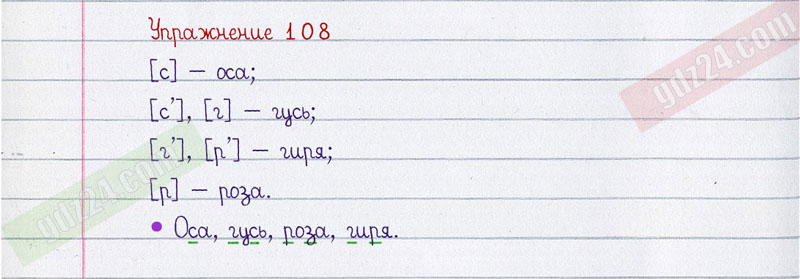 Упражнение 108
[с] – оса;
[с'], [г] – гусь;
[г'], [р'] – гиря;
[р] – роза.
• Оса, гусь, роза, гиря.
gdz24.com
gdz24.com